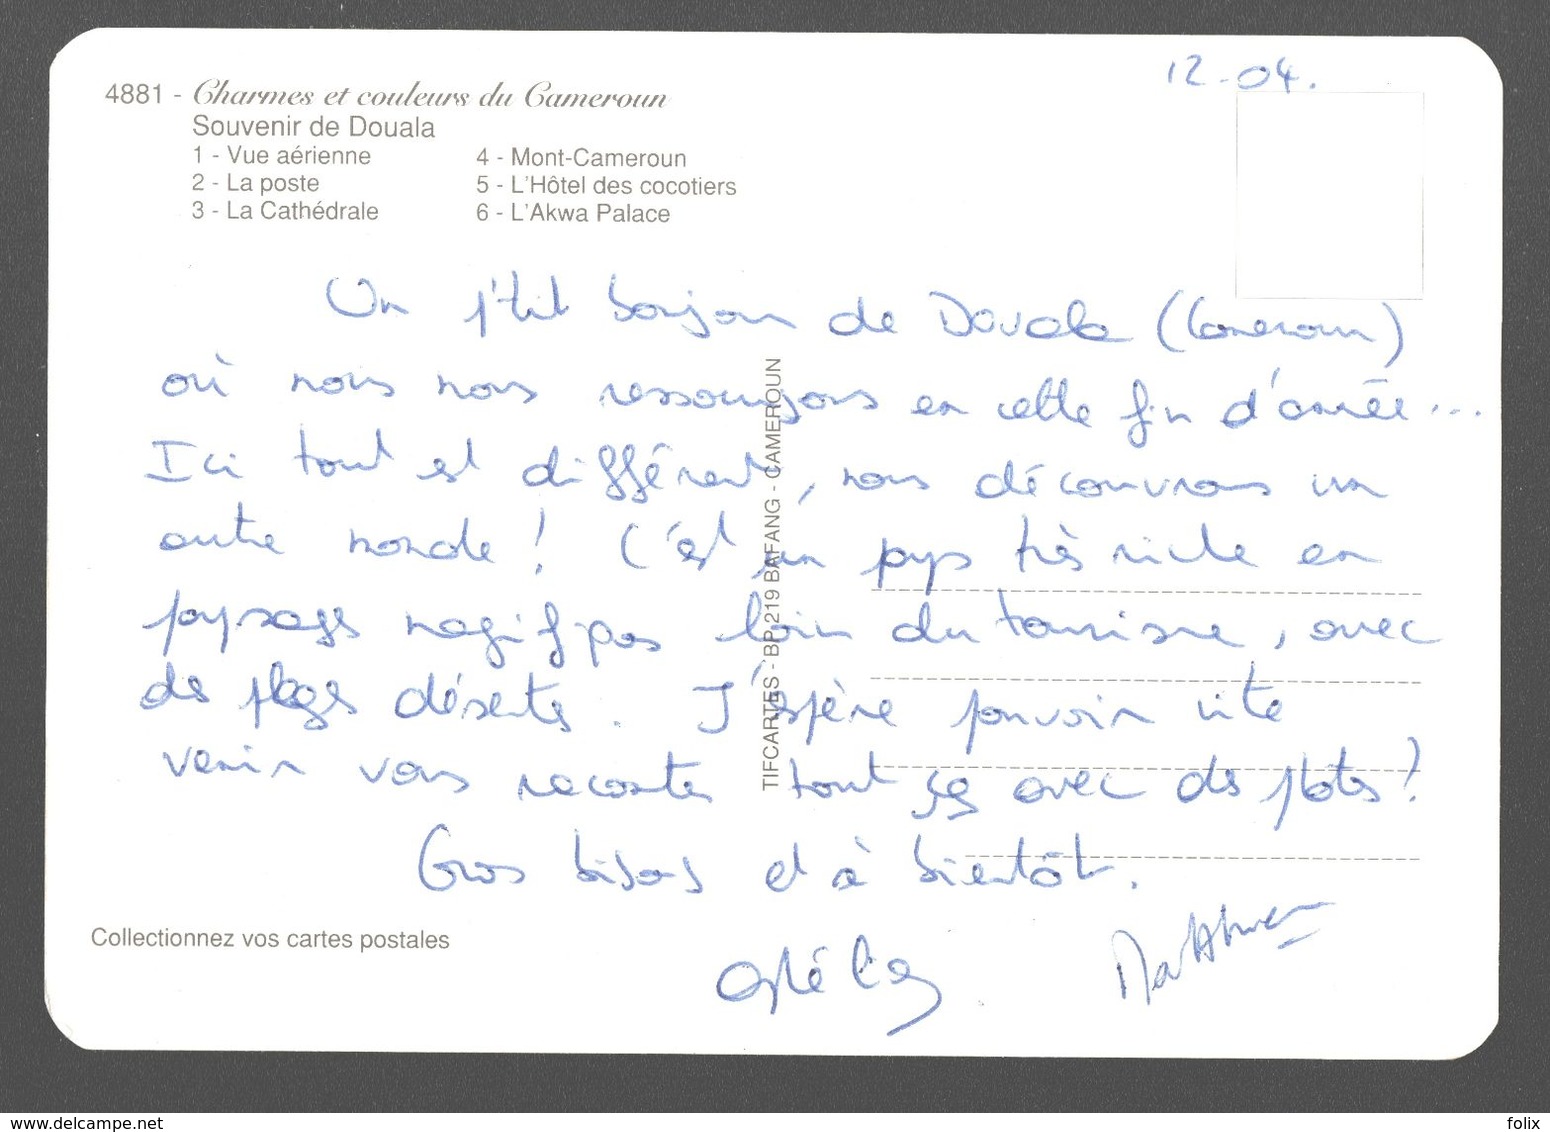 12-04.
4881 - Charmes et couleurs du Cameroun
Souvenir de Douala
1 - Vue aérienne
2 - La poste
3 - La Cathédrale
4 - Mont-Cameroun
5 - L'Hôtel des cocotiers
6 - L'Akwa Palace
Un p'tit bonjour de Douala (Cameroun)
où nous nous ressourçons en cette fin d'année...
Ici tout est différent, nous découvrons un
autre monde ! C'est un pays très riche en
paysages magnifiques loin du tourisme, avec
des plages désertes. J'espère pouvoir vite
venir vous raconter tout ça avec des photos !
Gros bisous et à bientôt.
Matthieu
TIFCARTES - BP 219 BAFANG - CAMEROUN
Collectionnez vos cartes postales
www.delcampe.net
folix